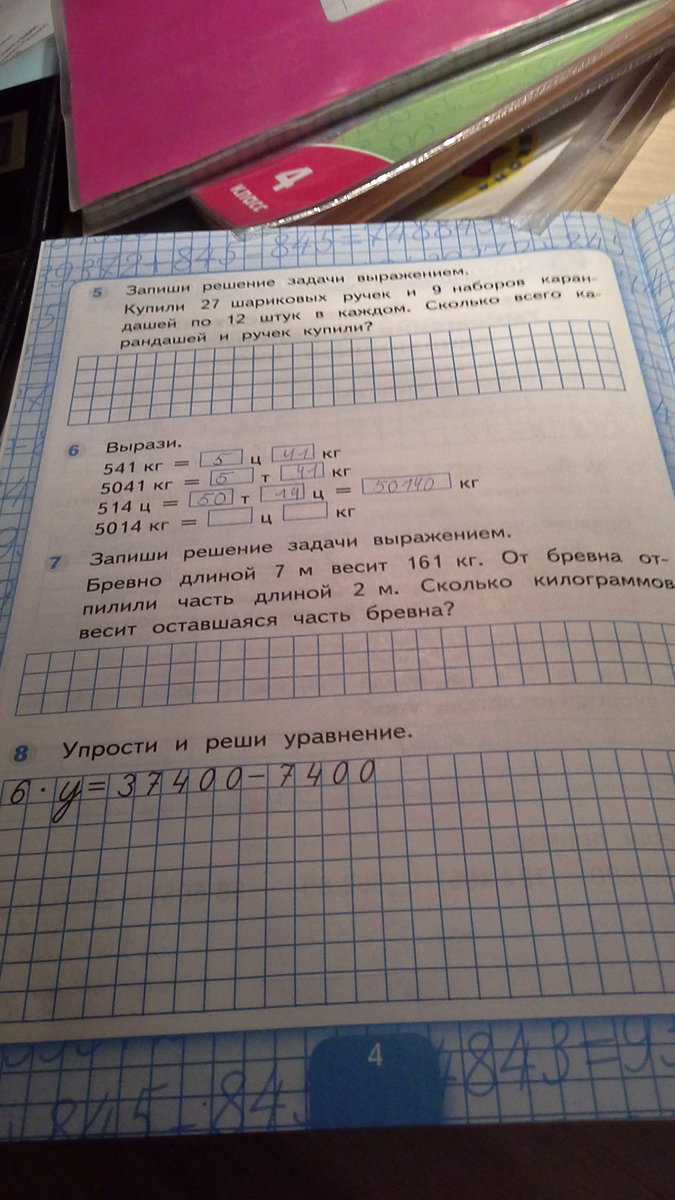 4
КЛАСС
5 Запиши решение задачи выражением.
Купили 27 шариковых ручек и 9 наборов каран-
дашей по 12 штук в каждом. Сколько всего ка-
рандашей и ручек купили?
6 Вырази.
541 кг = 5 ц 41 кг
5041 кг = 5 т 41 кг
514 ц = 50 т 14 ц = 50140 кг
5014 кг = ц кг
7 Запиши решение задачи выражением.
Бревно длиной 7 м весит 161 кг. От бревна от-
пилили часть длиной 2 м. Сколько килограммов
весит оставшаяся часть бревна?
8 Упрости и реши уравнение.
6 · у = 37400 - 7400
4